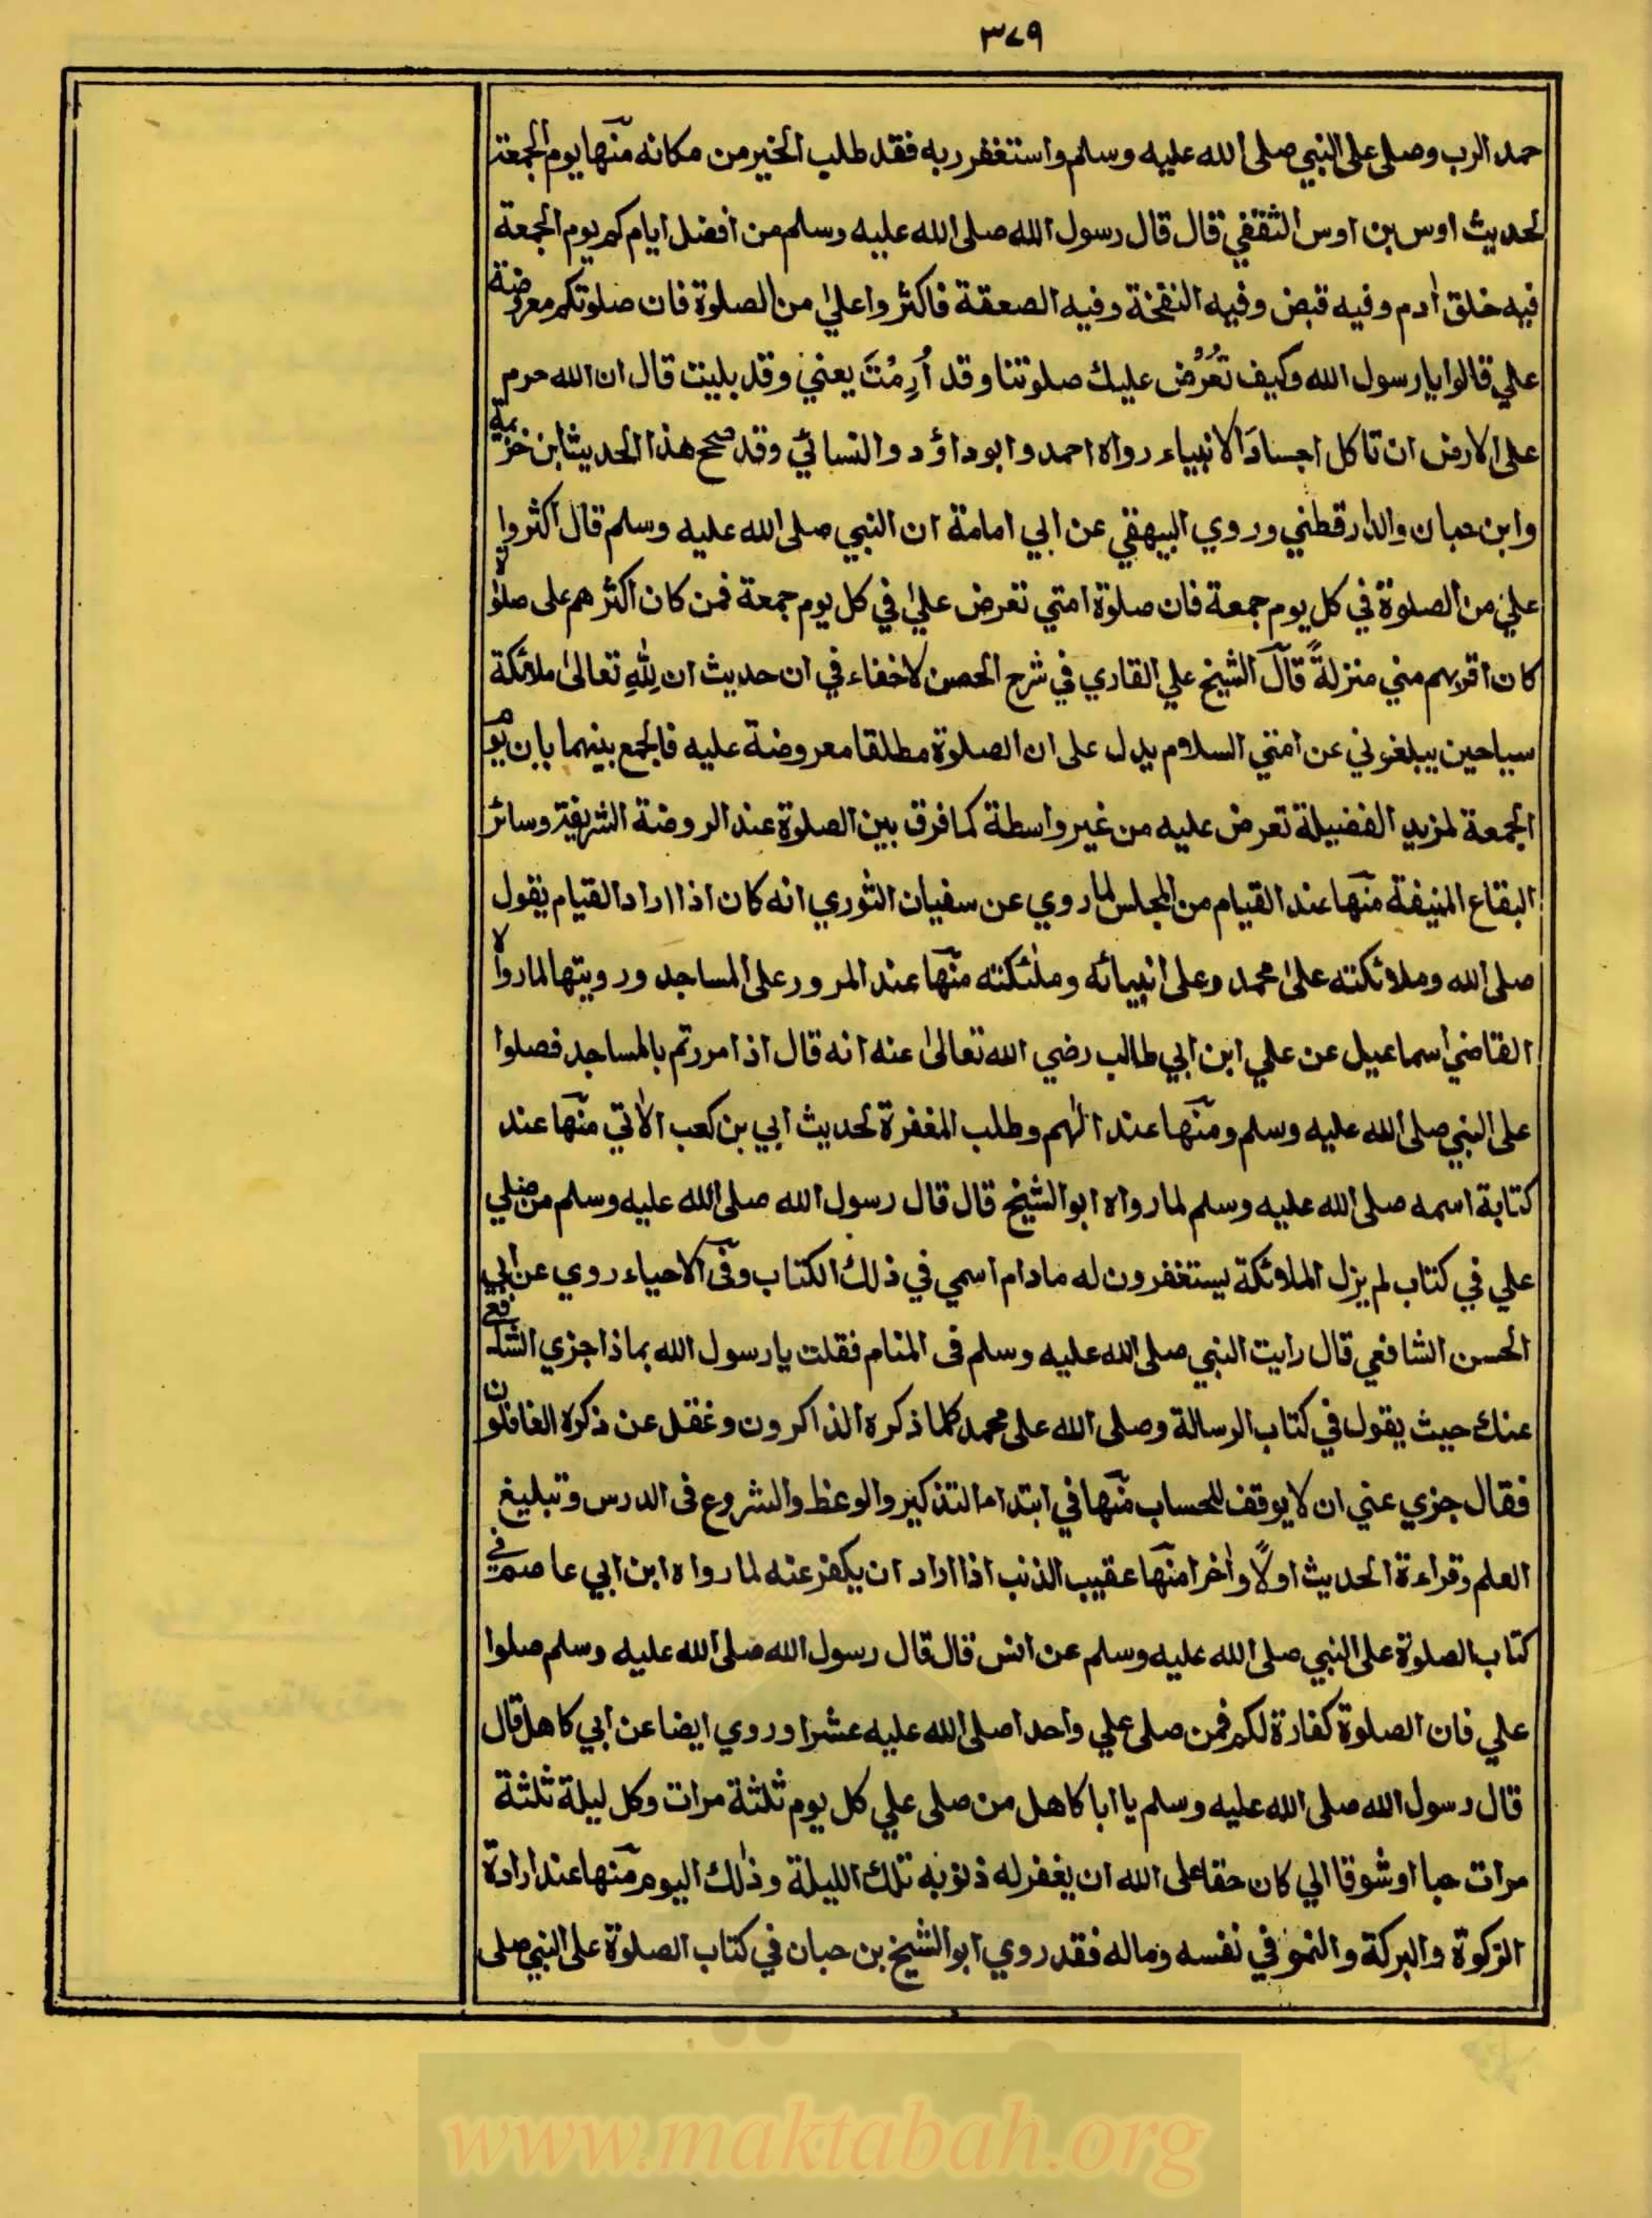 ٣٧٩
حمد الرب وصلى على النبي صلى الله عليه وسلم واستغفر ربه فقد طلب الخير من مكانه منها يوم الجمعة
لحديث اوس بن اوس الثقفي قال قال رسول الله صلى الله عليه وسلم من افضل ايامكم يوم الجمعة
فيه خلق اٰدم وفيه قبض وفيه النفخة وفيه الصعقة فاكثروا علي من الصلوة فان صلوتكم معروضة
علي قالوا يا رسول الله وكيف تُعرُض عليك صلوتنا وقد اُرِمْتَ يعني وقد بليت قال ان الله حرم
على الارض ان تاكل اجسادَ الانبياء رواه احمد وابو داؤد والنسائي وقد صحح هذا الحديث ابن خزيمة
وابن حبان والدارقطني وروي البيهقي عن ابي امامة ان النبي صلى الله عليه وسلم قال اكثروا
علي من الصلوة في كل يوم جمعة فان صلوة امتي تعرض علي في كل يوم جمعة فمن كان اكثرهم على صلوة
كان اقربهم مني منزلةً قال الشيخ علي القاري في شرح الحصن لا خفاء في ان حديث ان لِلّٰهِ تعالىٰ ملائكة
سياحين يبلغوني عن امتي السلام يدل على ان الصلوة مطلقا معروضة عليه فالجمع بينهما بان يوم
الجمعة لمزيد الفضيلة تعرض عليه من غير واسطة كما فرق بين الصلوة عند الروضة الشريفة وسائر
البقاع المنيفة منها عند القيام من المجلس لما روي عن سفيان الثوري انه كان اذا اراد القيام يقول
صلى الله وملائكته علىٰ محمد وعلى انبيائه وملٰئكته منها عند المرور على المساجد ورويتها لما رواه
القاضي اسماعيل عن علي ابن ابي طالب رضي الله تعالىٰ عنه انه قال اذا مررتم بالمساجد فصلوا
على النبي صلى الله عليه وسلم ومنها عند الهم وطلب المغفرة لحديث ابي بن كعب الاٰتي منها عند
كتابة اسمه صلى الله عليه وسلم لما رواه ابو الشيخ قال قال رسول الله صلى الله عليه وسلم من صلي
علي في كتاب لم يزل الملائكة يستغفرون له مادام اسمي في ذلك الكتاب وفى الاحياء روي عن ابي
الحسن الشافعي قال رايت النبي صلى الله عليه وسلم فى المنام فقلت يا رسول الله بماذا جزي الشافعي
عنك حيث يقول في كتاب الرسالة وصلى الله على محمد كلما ذكره الذاكرون وغفل عن ذكره الغافلون
فقال جزي عني ان لا يوقف للحساب منها في ابتداء التذكير والوعظ والشروع فى الدرس وتبليغ
العلم وقراءة الحديث اولًا واٰخرا منها عقيب الذنب اذا اراد ان يكفر عنه لما رواه ابن ابي عاصم في
كتاب الصلوة على النبي صلى الله عليه وسلم عن انس قال قال رسول الله صلى الله عليه وسلم صلوا
علي فان الصلوة كفارة لكم فمن صلى علي واحدا صلى الله عليه عشرا وروي ايضا عن ابي كاهل قال
قال رسول الله صلى الله عليه وسلم يا ابا كاهل من صلى علي كل يوم ثلثة مرات وكل ليلة ثلثة
مرات حبا او شوقا الي كان حقا على الله ان يغفر له ذنوبه تلك الليلة وذٰلك اليوم منها عند ارادة
الزكوة والبركة والنمو في نفسه وماله فقد روي ابو الشيخ بن حبان في كتاب الصلوة على النبي صلى
www.maktabah.org